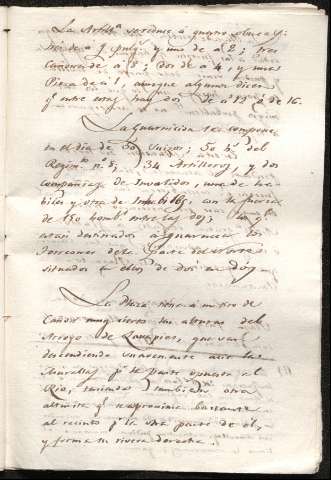 La Artill.ª se reduce á quatro obuces;
tres de á 9 pulg.s y uno de á 2; tres
Cañones de á 8; dos de á 4 y nueve
Piezas de á 1, aunque algunos dicen
q.e entre estas hay dos de á 12 ó de 16.
La Guarnicion se compone
en el dia de 50 Suizos; 50 h.s del
Regim.to n.º 8; 34 Artilleros, y dos
compañias de Imbalidos, una de ha-
biles y otra de inhabiles, con la fuerza
de 150 homb.s entre las dos; los q.e
estan destinados á guarnecer los
Torreones de la parte del Norte
situados en ellos de dos en dos.
La Plaza tiene á un tiro de
Cañon muy ciertos las alturas del
Arroyo de
descendiendo suavemente acia las
Murallas p.r la parte opuesta al
Rio, teniendo tambien otra
altura q.e se aproxima bastante
al recinto p.r la otra parte de el,
y forma su rivera derecha.